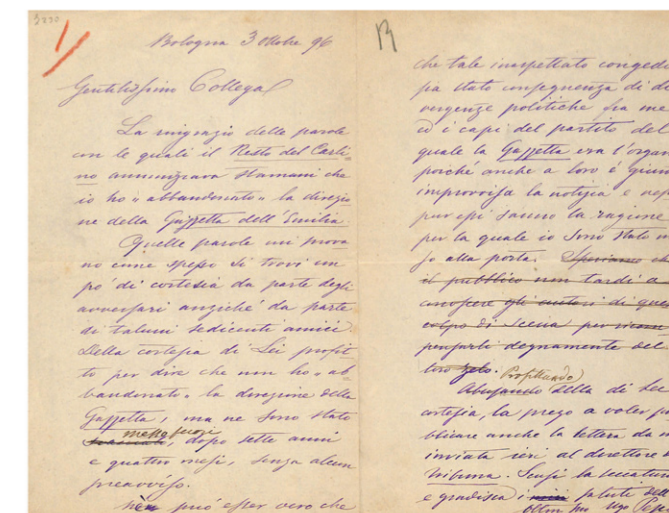 3230
Bologna 3 Ottobre 96
Gentilissimo Collega,
La ringrazio delle parole
con le quali il Resto del Carli-
no annunziava stamani che
io ho "abbandonato" la direzio
ne della Gazzetta dell'Emilia.
Quelle parole mi prova
no come spesso si trovi un
po' di cortesia da parte degli
avversari anziché da parte
di taluni sedicenti amici.
Della cortesia di Lei profit
to per dire che non ho "ab
bandonato" la direzione della
Gazzetta, ma ne sono stato
messo fuori
dopo sette anni
e quattro mesi, senza alcun
preavviso.
Non può esser vero che
che tale inaspettato congedo
sia stato conseguenza di di
vergenze politiche fra me
ed i capi del partito del
quale la Gazzetta era l'organ
poiché anche a loro è giun
improvvisa la notizia e nep
pur essi sanno la ragione
per la quale io sono stato m
so alla porta. Speriamo ch
il pubblico non tardi a
conoscere gli autori di ques
colpo di scena per ricom
pensarli degnamente del
loro zelo.
Profittando
Abusando della di Lei
cortesia, la prego a voler pu
blicare anche la lettera da m
inviata ieri al direttore d
Tribuna. Scusi la seccatur
e gradisca i saluti dell
Ugo Pes